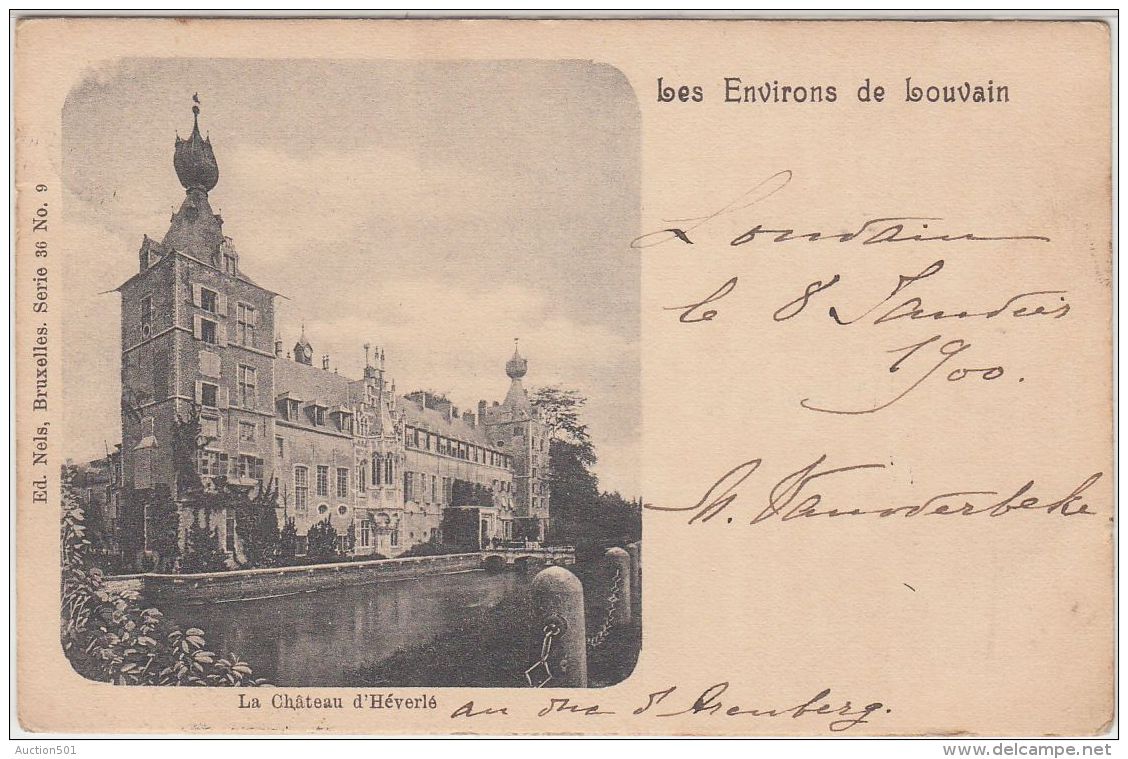 Les Environs de Louvain
Louvain
le 8 Janvier
1900.
M. Vanderbeke.
La Château d'Héverlé au duc d'Arenberg.
Ed. Nels, Bruxelles. Serie 36 No. 9
Auction501
www.delcampe.net